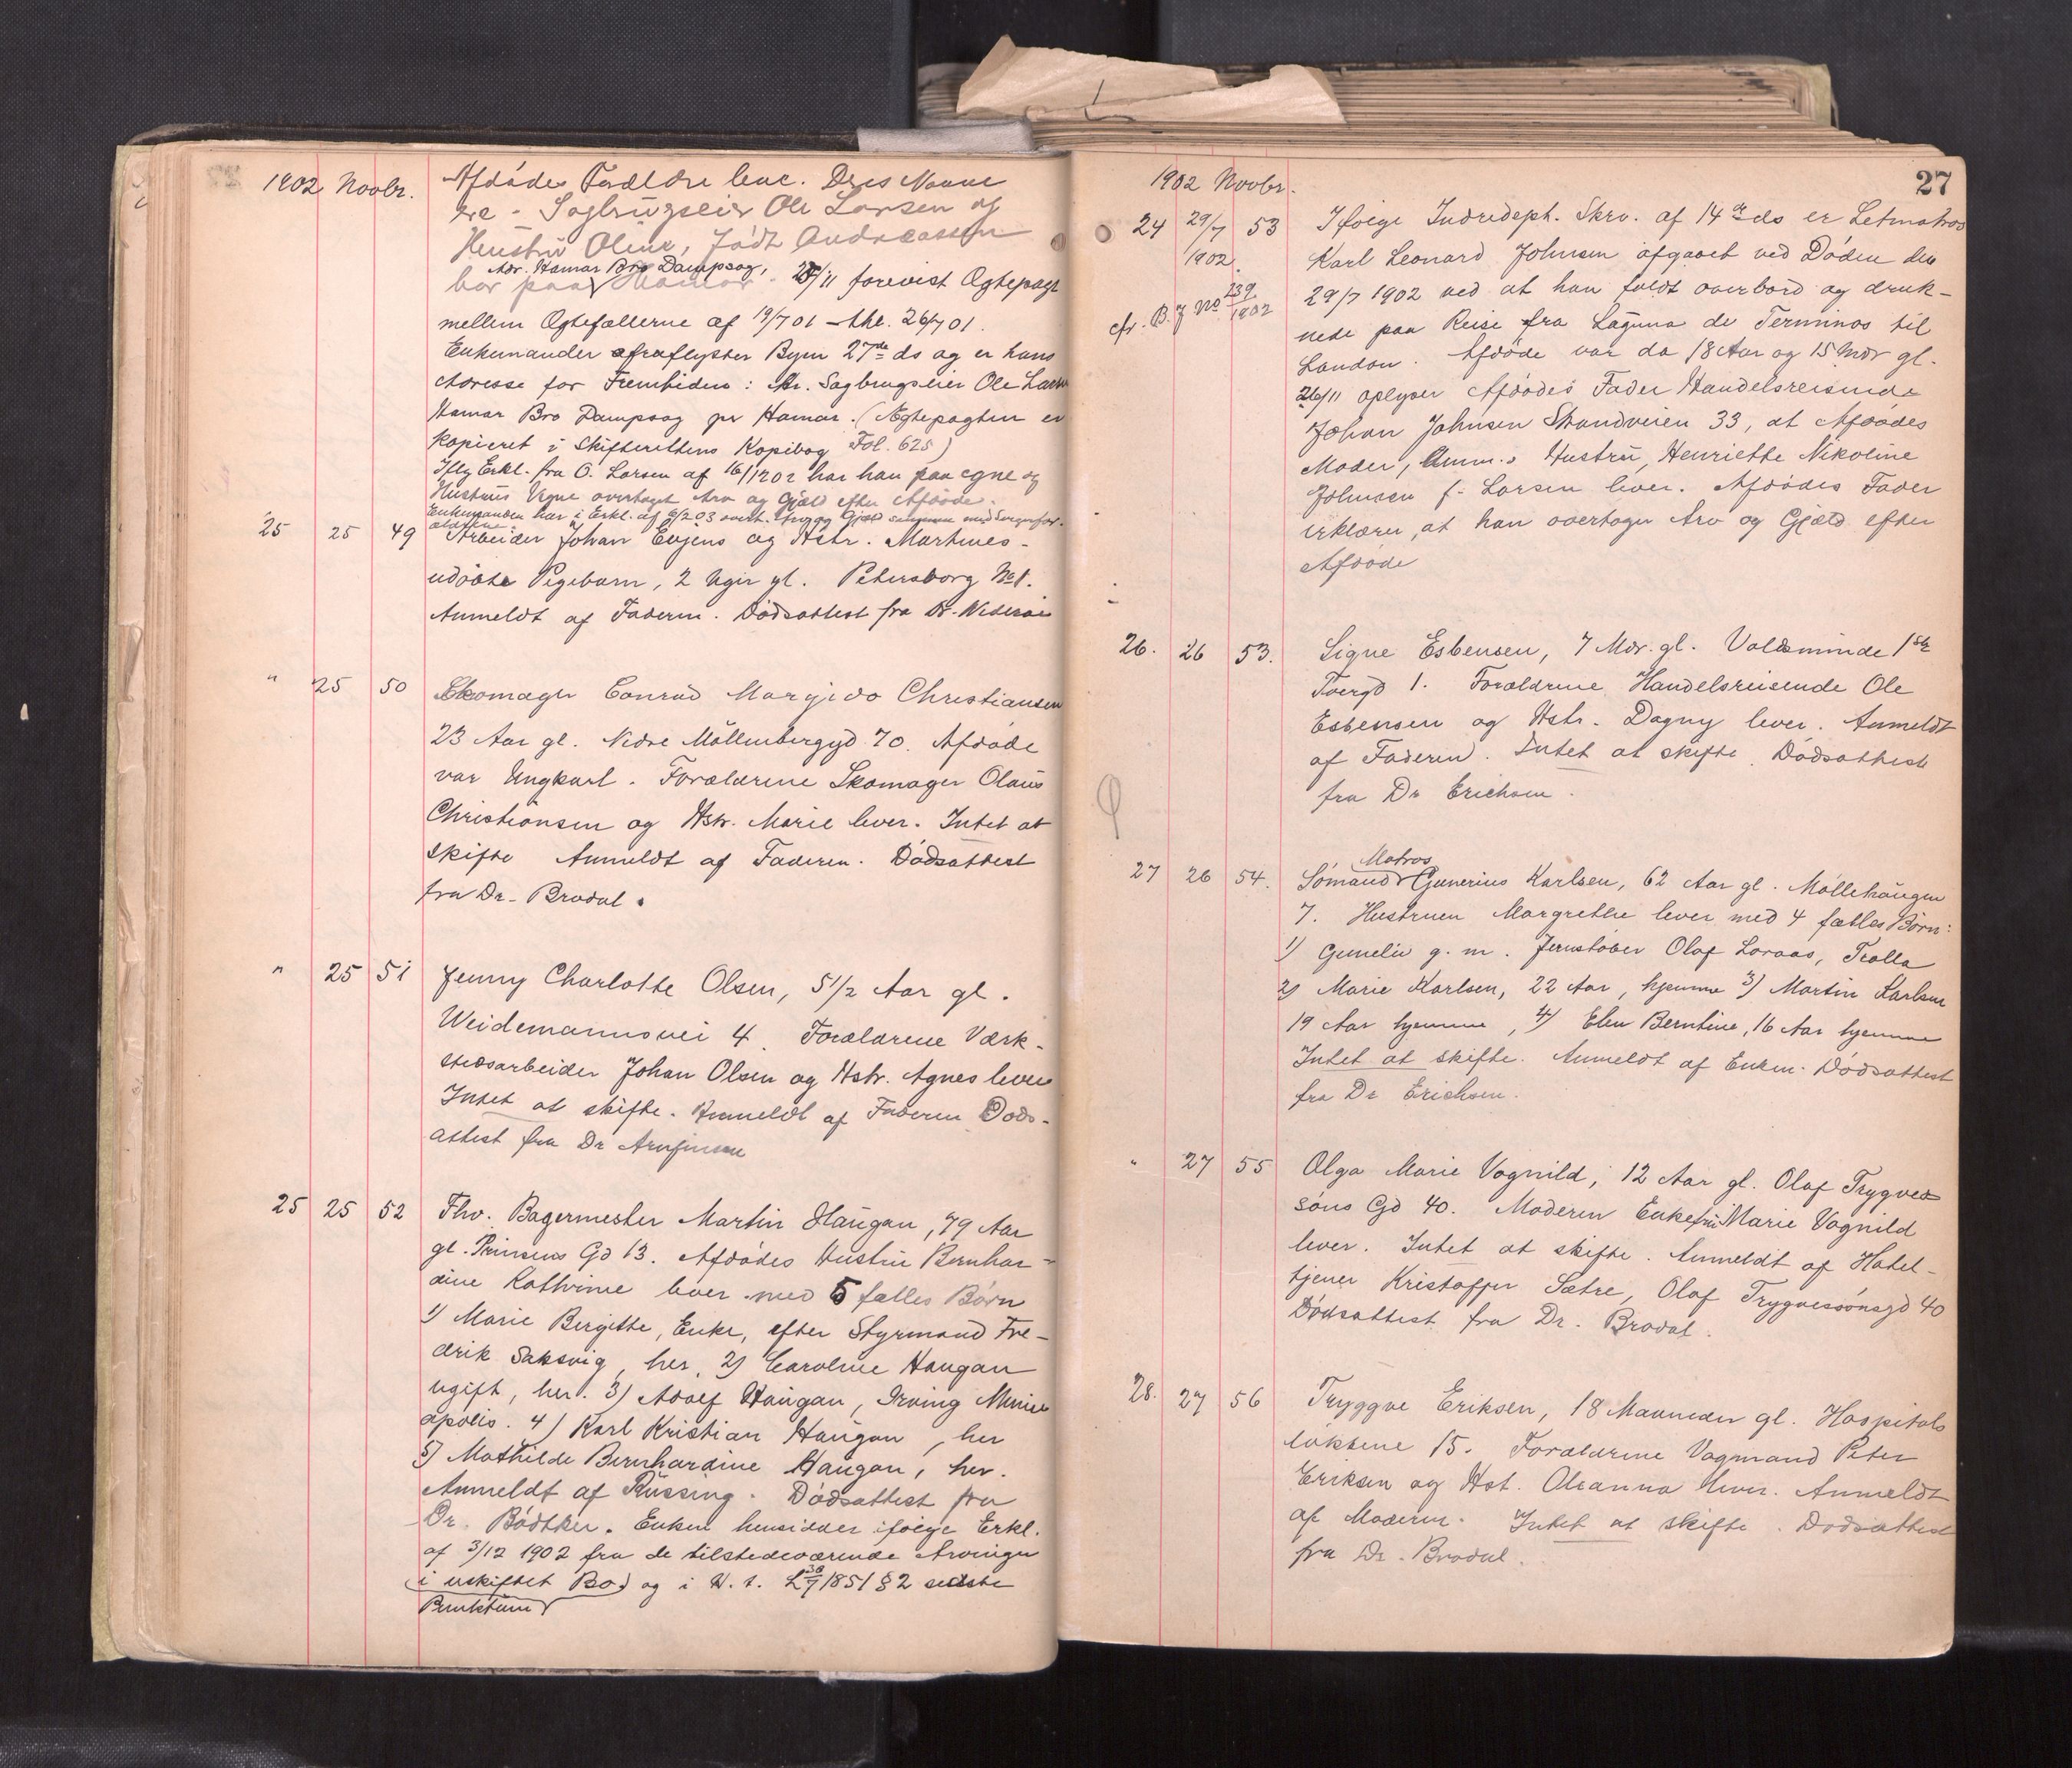 1902 Novbr.
Afdødes Forældre leve. Deres Navne
ere - Sagbrugseier Ole Larsen og
Hustrü Oline, født Andreassen
Adr. Hamar Bro Dampsag,
bor paa Hamar. 27/11 forevist Ogtepagt
mellem Ogtefællerne af 19/7 01 - thl. 26/7 01.
Enkemanden fraflytter Byen 27de ds og er hans
Adresse for Fremtiden: Hr. Sagbrugseier Ole Larsen
Hamar Bro Dampsag pr Hamar. (Ægtepagten er
kopieret i Skifterettens Kopibog Fol. 625)
Iflg Erkl. fra O. Larsen af 16/1202 har han paa egne og
Hustrus Vegne overtaget Arv og Gjæld efter Afdøde.
Enkemanden har i Erkl. af 9/2 03 overt. Arv og Gjæld sammen med Svigerfor-
ældrene.
25 25 49 Arbeider Johan Eugens og Hstr. Martines -
udöbte Pigebarn, 2 Uger gl. Petersborg No 1.
Anmeldt af Faderen. Dödsattest fra Dr. Wideröe
" 25 50 Skomager Conrad Margido Christiansen
23 Aar gl. Nedre Möllenberggd 70. Afdøde
var Ungkarl. Forældrene Skomager Olaüs
Christiansen og Hstr. Marie lever. Intet at
skifte Anmeldt af Faderen. Dödsattest
fra Dr. Brodal.
" 25 51 Jenny Charlotte Olsen, 5 1/2 Aar gl.
Weidemannsvei 4. Forældrene Værk-
stedsarbeider Johan Olsen og Hstr. Agnes lever
Intet at skifte. Anmeldt af Faderen Döds-
attest fra Dr Arnfinsen
25 25 52 Fhv. Bagermester Martin Haügan, 79 Aar
gl. Prinsens Gd 13. Afdödes Hustrü Bernhar-
dine Kathrine lever med 5 fælles Börn
1) Marie Bergitte, Enke, efter Styrmand Fre-
drik Saksvig, her, 2) Caroline Haugan
ugift, her. 3) Adolf Haügan, Irving Minne
apolis. 4) Karl Kristian Haügan, her
5) Mathilde Bernhardine Haügan, her.
Anmeldt af Rüssing. Dödsattest fra
Dr. Bödtker. Enken hensidder ifölge Erkl.
af 3/12 1902 fra de tilstedeværende Arvinger
i uskiftet Bo og i H. t. L 30/7 1851 § 2 sidste
Punktüm
27
1902 Novbr.
24 29/7 1902 53 Ifölge Indredept. Skrv. af 14de ds er Letmatros
Karl Leonard Johnsen afgaaet ved Döden den
cfr. B. J No 239/1902
29/7 1902 ved at han faldt overbord og druk-
nede paa Reise fra Laguna de Terminos til
London. Afdöde var da 18 Aar og 15 Mdr gl.
26/11 oplyser Afdödes Fader Handelsreisende
Johan Johnsen Strandveien 33, at Afdödes
Moder, Anm.s Hustrü, Henriette Nikoline
Johnsen f. Larsen lever. Afdödes Fader
erklærer, at han overtager Arv og Gjæld efter
Afdöde
26. 26 53. Signe Esbensen, 7 Mdr. gl. Voldsminde 1ste
Tvergd 1. Forældrene Handelsreisende Ole
Esbensen og Hstr. Dagny lever. Anmeldt
af Faderen. Intet at skifte. Dödsattest
fra Dr Erichsen.
27 26 54. Sömand Matros Gunerius Karlsen, 62 Aar gl. Möllehaugen
7. Hustruen Margrethe lever med 4 fælles Börn:
1) Gunelie g. m. Jernstöber Olaf Loraas, Trolla
2) Marie Karlsen, 22 Aar, hjemme 3) Martin Karlsen
19 Aar hjemme, 4) Elen Berntine, 16 Aar hjemme
Intet at skifte. Anmeldt af Enken. Dödsattest
fra Dr Erichsen.
" 27 55 Olga Marie Vognild, 12 Aar gl. Olaf Trygves
söns Gd 40. Moderen Enkefrü Marie Vognild
lever. Intet at skifte. Anmeldt af Hotel-
tjener Kristoffer Sætre, Olaf Trygvessönsgd 40
Dödsattest fra Dr. Brodal.
28. 27 56 Tryggve Eriksen, 18 Maaneder gl. Hospitals
lökkene 15. Forældrene Vognmand Peter
Eriksen og Hst. Oleanna lever. Anmeldt
af Moderen. Intet at skifte. Dodsattest
fra Dr. Brodal.